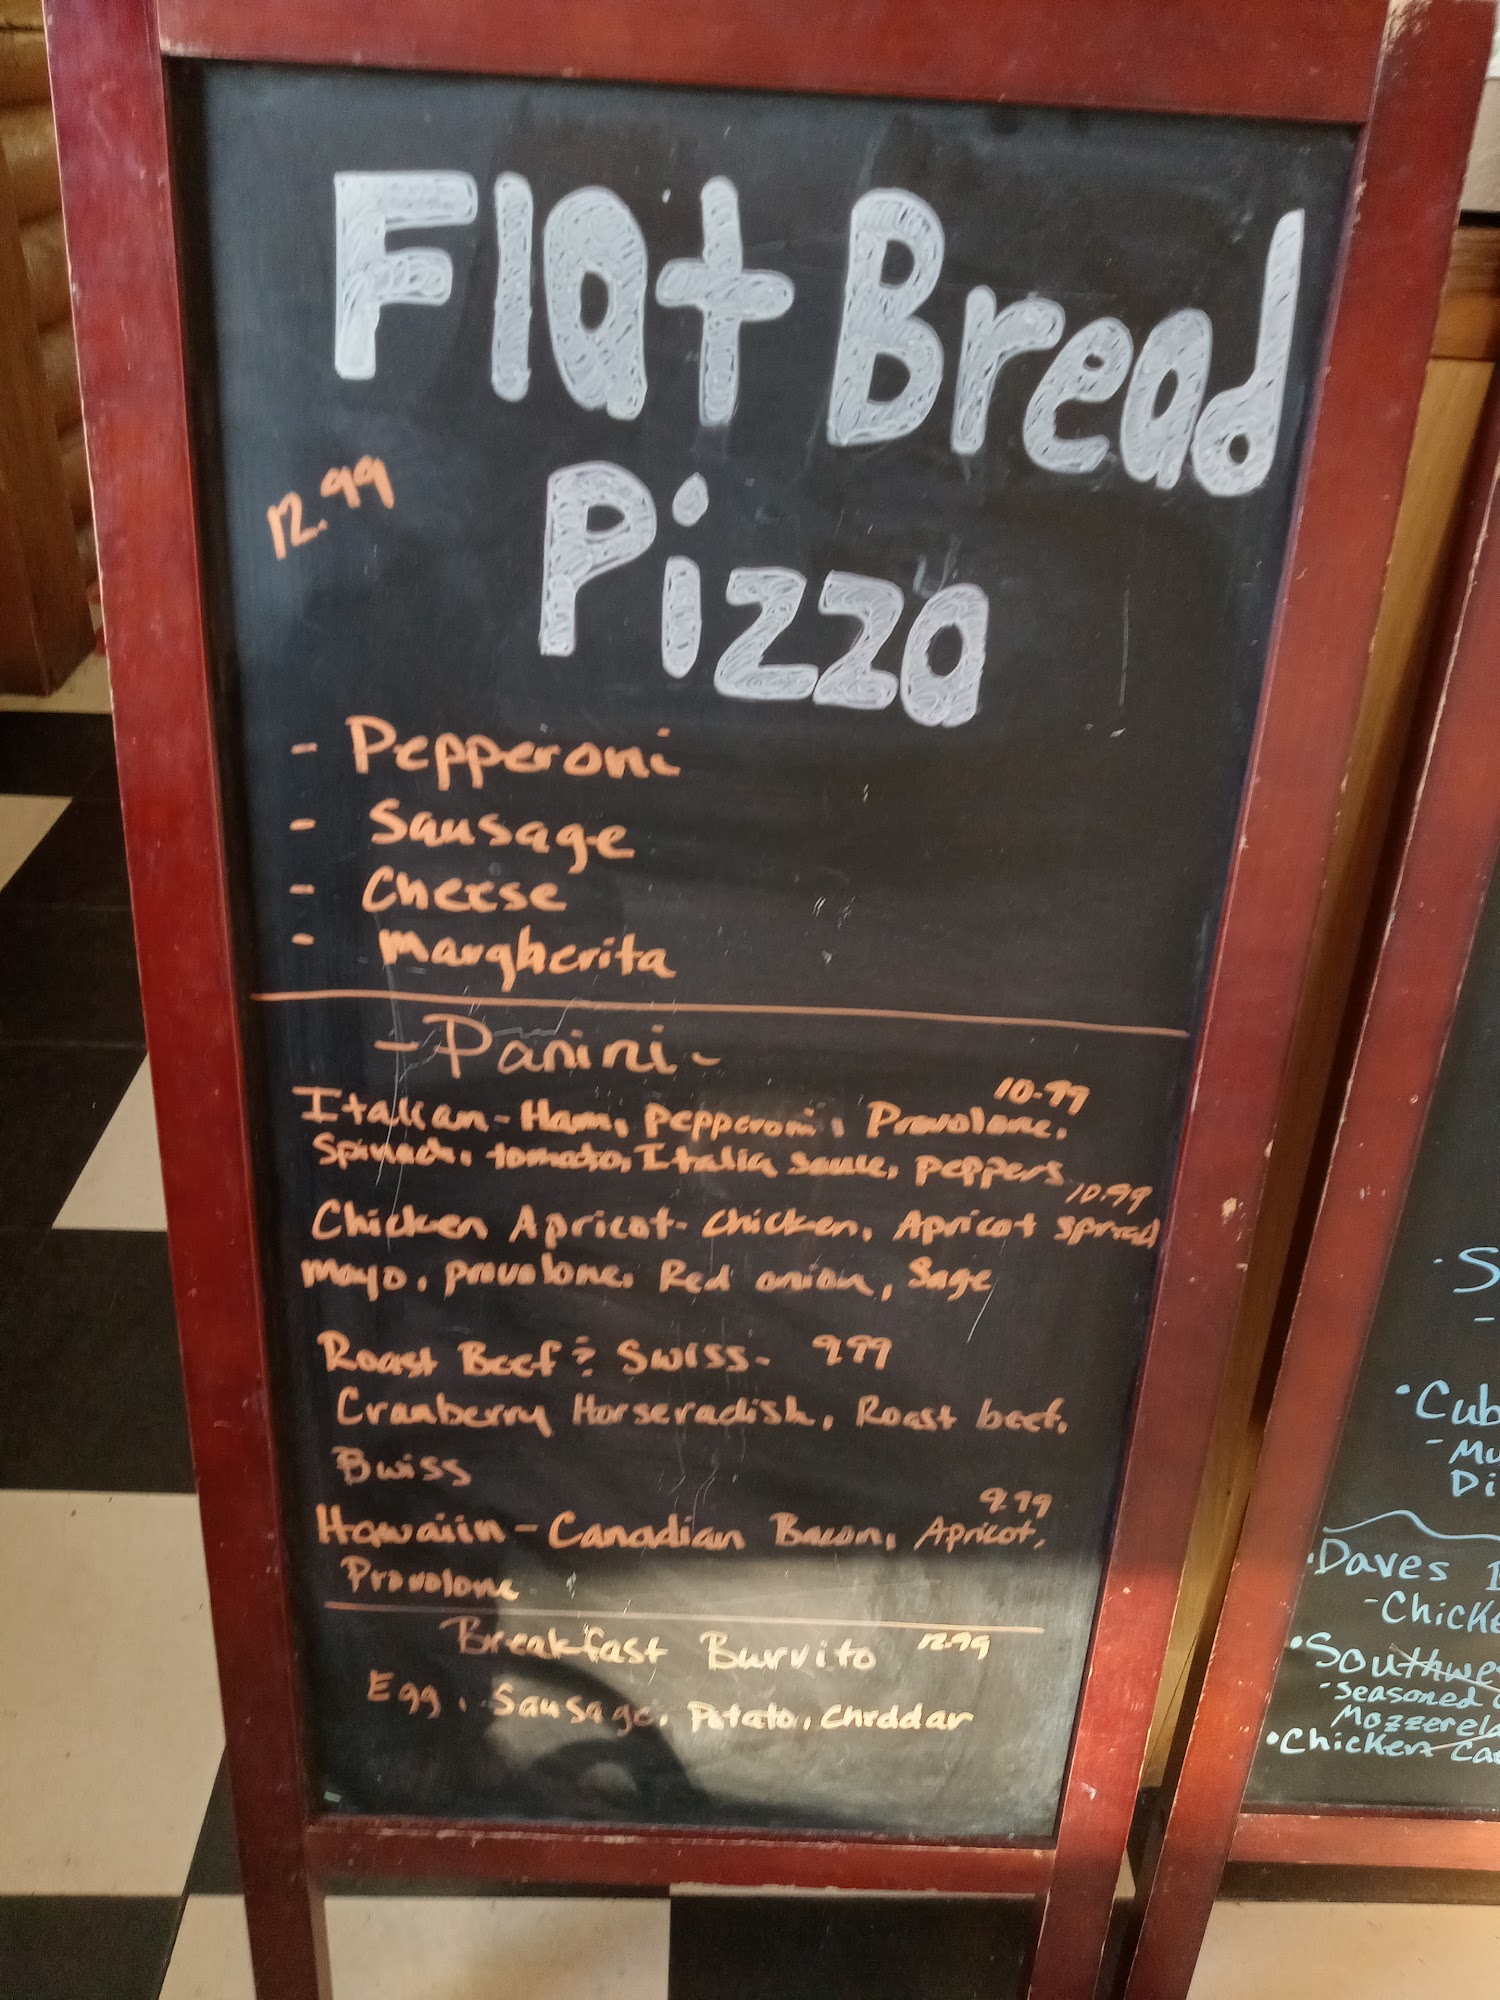 Flat Bread
12.99
Pizza
- Pepperoni
- Sausage
- Cheese
- Margherita
- Panini -
10.99
Italian - Ham, Pepperoni, Provolone,
Spinach, tomato, Italia sauce, peppers
10.99
Chicken Apricot - Chicken, Apricot spread
mayo, provolone, Red onion, Sage
Roast Beef & Swiss - 9.99
Cranberry Horseradish, Roast beef,
Swiss
9.99
Hawaiin - Canadian Bacon, Apricot,
Provolone
Breakfast Burrito 12.99
Egg, Sausage, Potato, Cheddar
• S
-
• Cub
- Mu
Di
• Daves
- Chick
• Southwe
- Seasoned
Mozzerel
• Chicken Ca